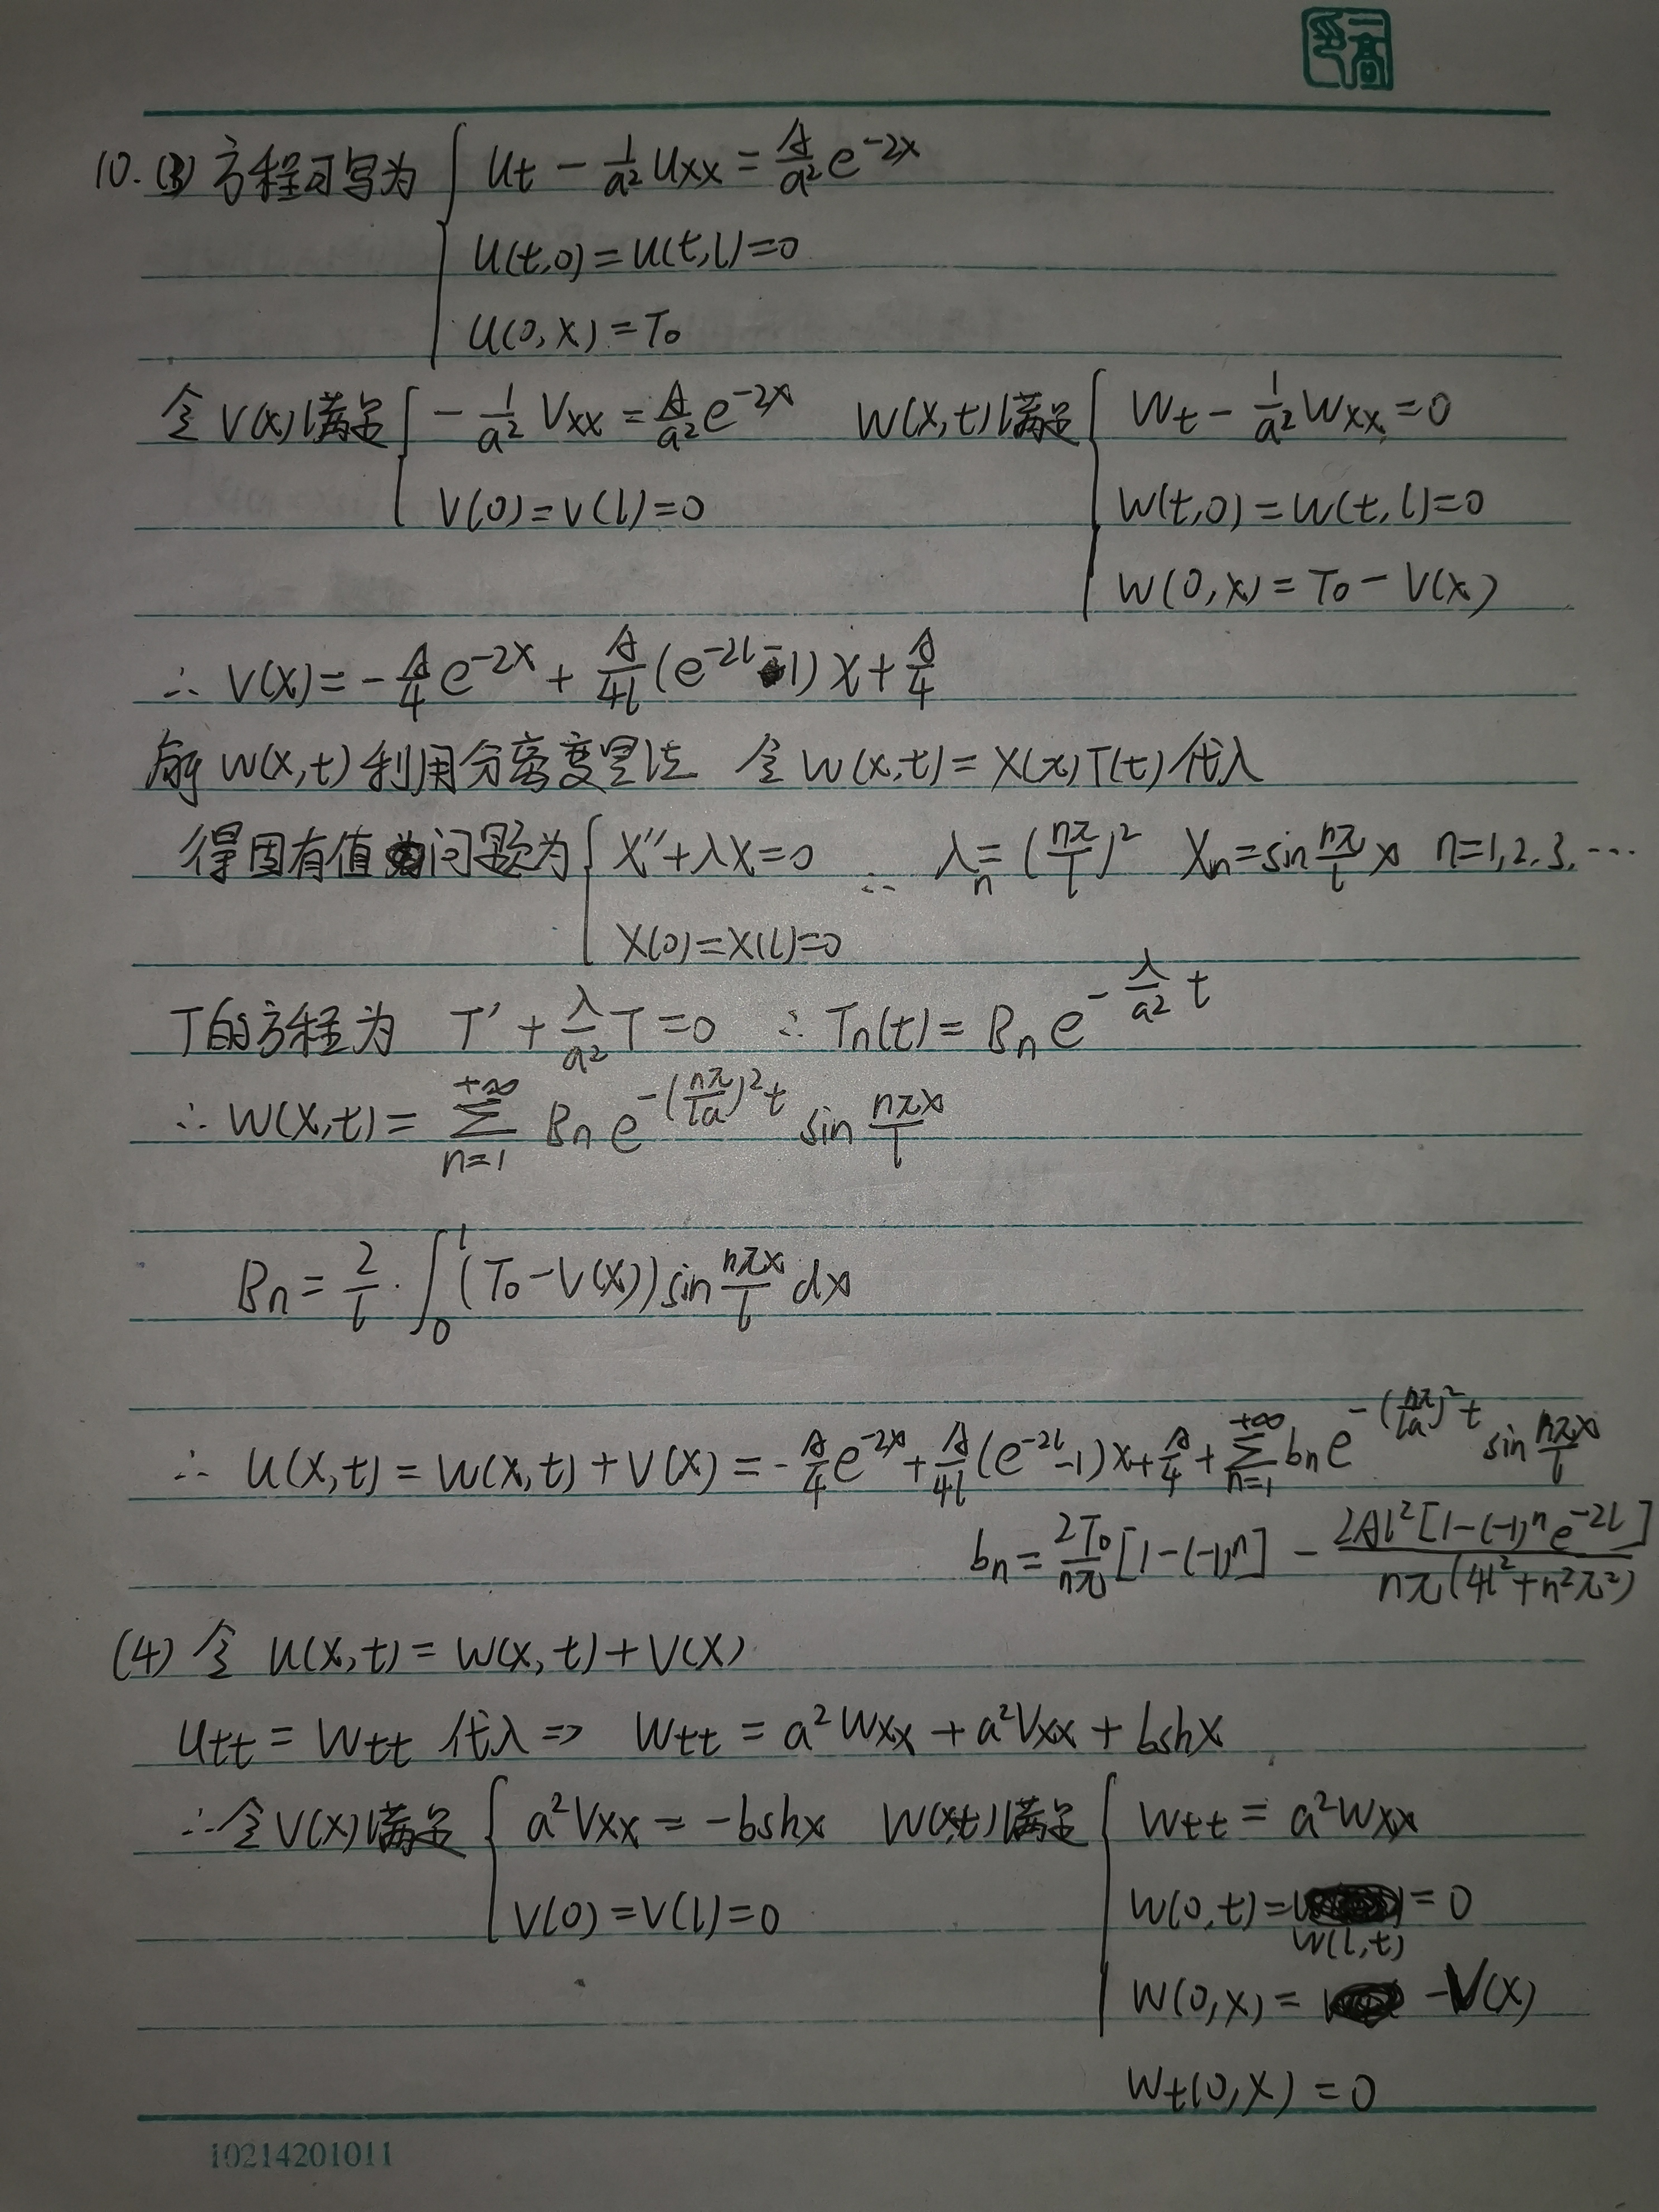 10.(3) 方程可写为 { Ut - 1/a² Uxx = A/a² e^{-2x}
U(t,0)=U(t,l)=0
U(0,x)=T₀
令V(x)满足 { -1/a² Vxx = A/a² e^{-2x} W(x,t)满足 { Wt - 1/a² Wxx = 0
V(0)=V(l)=0 W(t,0)=W(t,l)=0
W(0,x)=T₀-V(x)
∴ V(x)= -A/4 e^{-2x} + A/4l (e^{-2l}-1)x + A/4
解W(x,t)利用分离变量法 令W(x,t)=X(x)T(t)代入
得固有值问题为 { X''+λX=0 ∴ λn=(nπ/l)² Xn=sin nπ/l x n=1,2,3,⋯
X(0)=X(l)=0
T的方程为 T' + λ/a² T=0 ∴ Tn(t)=Bn e^{-λ/a² t}
∴ W(x,t)= Σ_{n=1}^{+∞} Bn e^{-(nπ/la)² t} sin nπx/l
Bn = 2/l · ∫₀^l (T₀-V(x)) sin nπx/l dx
∴ U(x,t)=W(x,t)+V(x)= -A/4 e^{-2x} + A/4l (e^{-2l}-1)x + A/4 + Σ_{n=1}^{+∞} bn e^{-(nπ/la)² t} sin nπx/l
bn = 2T₀/nπ [1-(-1)^n] - 2Al²[1-(-1)^n e^{-2l}] / nπ(4l²+n²π²)
(4) 令 U(x,t)=W(x,t)+V(x)
Utt = Wtt 代入 ⇒ Wtt = a²Wxx + a²Vxx + bshx
∴令V(x)满足 { a²Vxx = -bshx W(x,t)满足 { Wtt = a²Wxx
V(0)=V(l)=0 W(0,t)=W(l,t)=0
W(0,x)= -V(x)
Wt(0,x)=0
10214201011